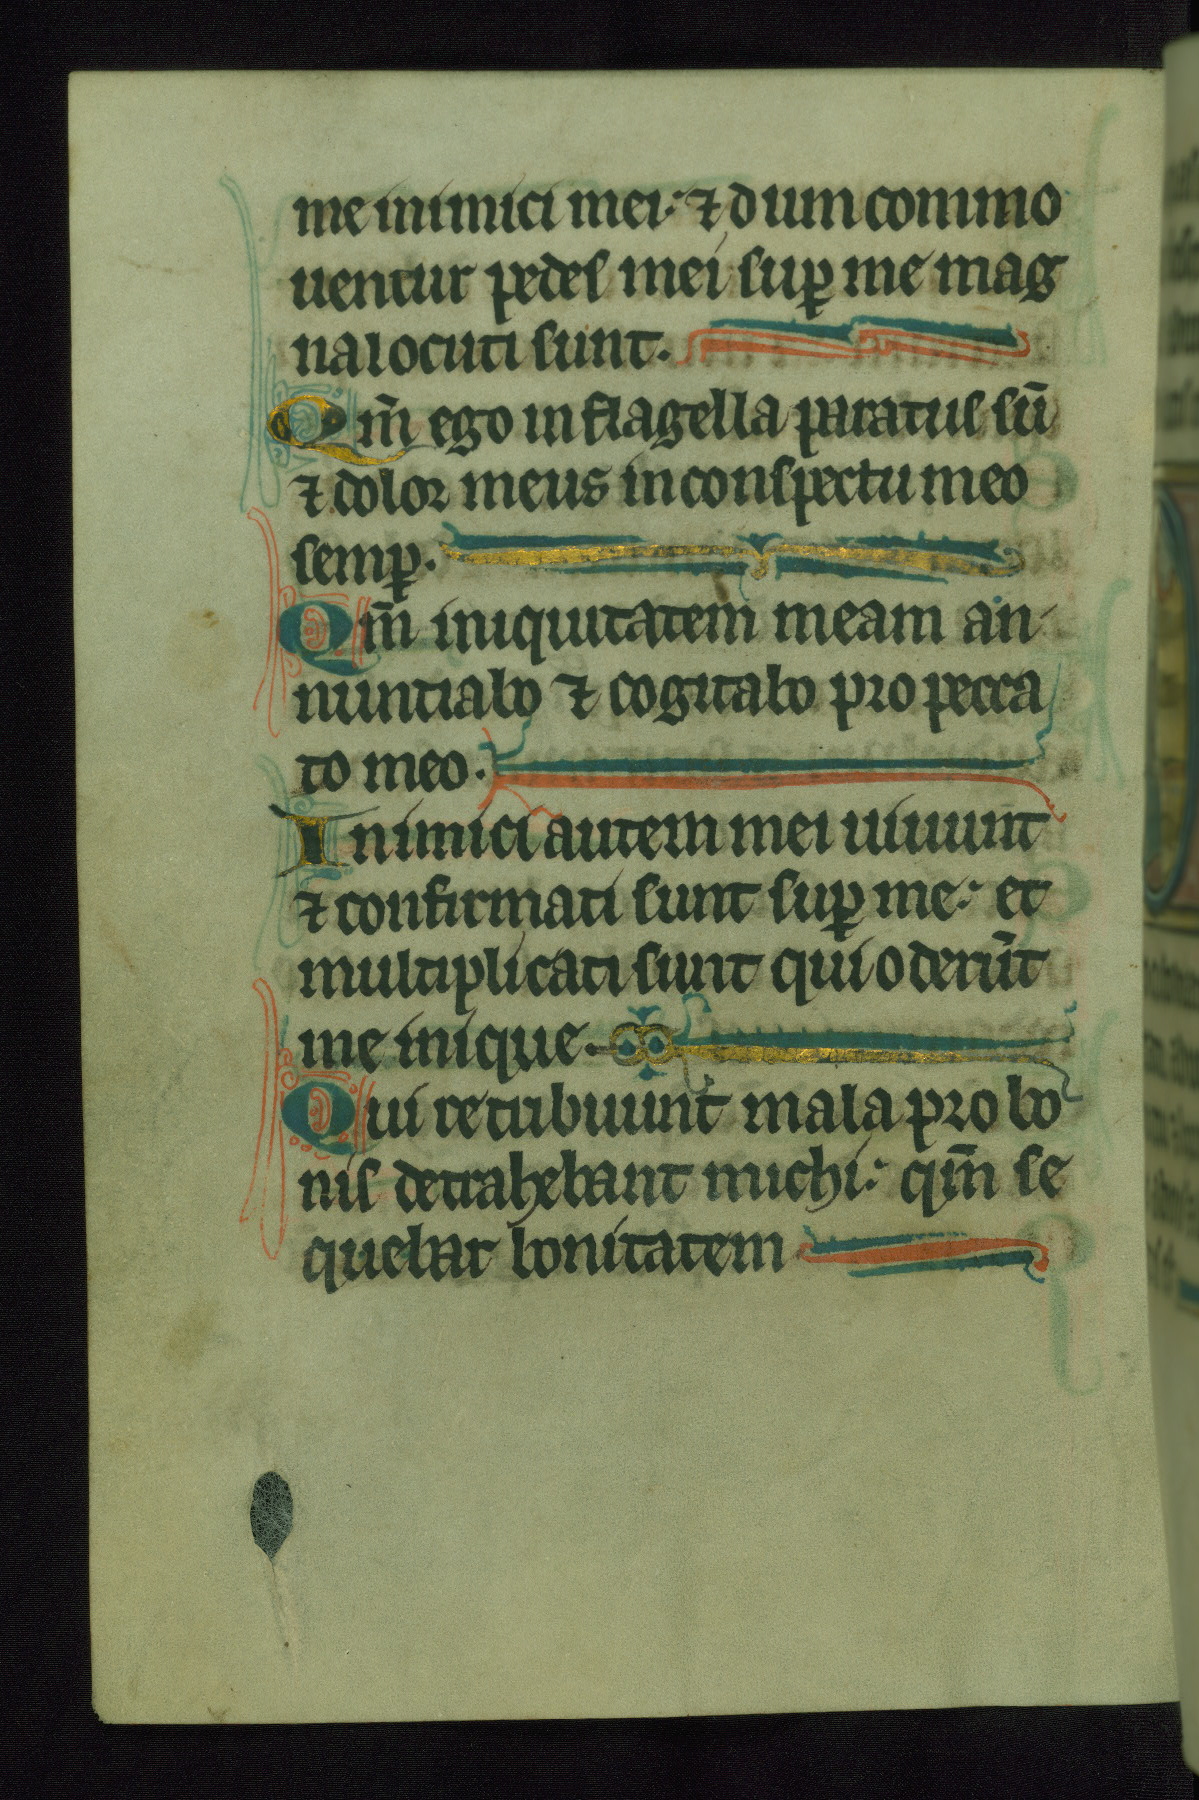 me inimici mei: ⁊ dum commo
uentur pedes mei sup̲ me mag
na locuti sunt.
Qm̄ ego in flagella paratus sū
⁊ dolor meus in conspectu meo
semꝑ.
Qm̄ iniquitatem meam an-
nuntiabo ⁊ cogitabo pro pecca
to meo.
Inimici autem mei uiuunt
⁊ confirmati sunt suꝑ me: et
multiplicati sunt qui oderūt
me inique.
Qui retribuunt mala pro bo
nis detrahebant michi: qm̄ se
quebar bonitatem